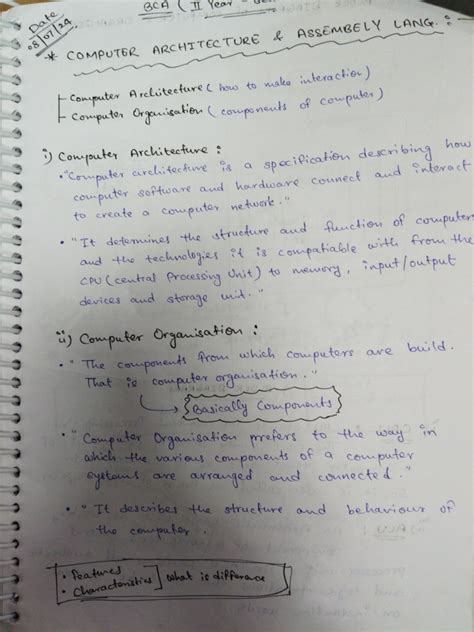 Date
08/07/24
BCA ( II Year -
* COMPUTER ARCHITECTURE & ASSEMBELY LANG. :-
Computer Architecture ( how to make interaction)
Computer Organisation ( components of computer)
i) Computer Architecture :
• "Computer architecture is a specification describing how
computer software and hardware connect and interact
to create a computer network."
• "It determines the structure and function of computer
and the technologies it is compatiable with from the
CPU (central Processing Unit) to memory, input/output
devices and storage unit."
ii) Computer Organisation :
• " The components from which computers are build.
That is computer organisation."
Basically Components
• "Computer Organisation prefers to the way in
which the various components of a computer
systems are arranged and connected."
• " It describes the structure and behaviour of
the computer.
• Features
• Characteristics ] what is differance